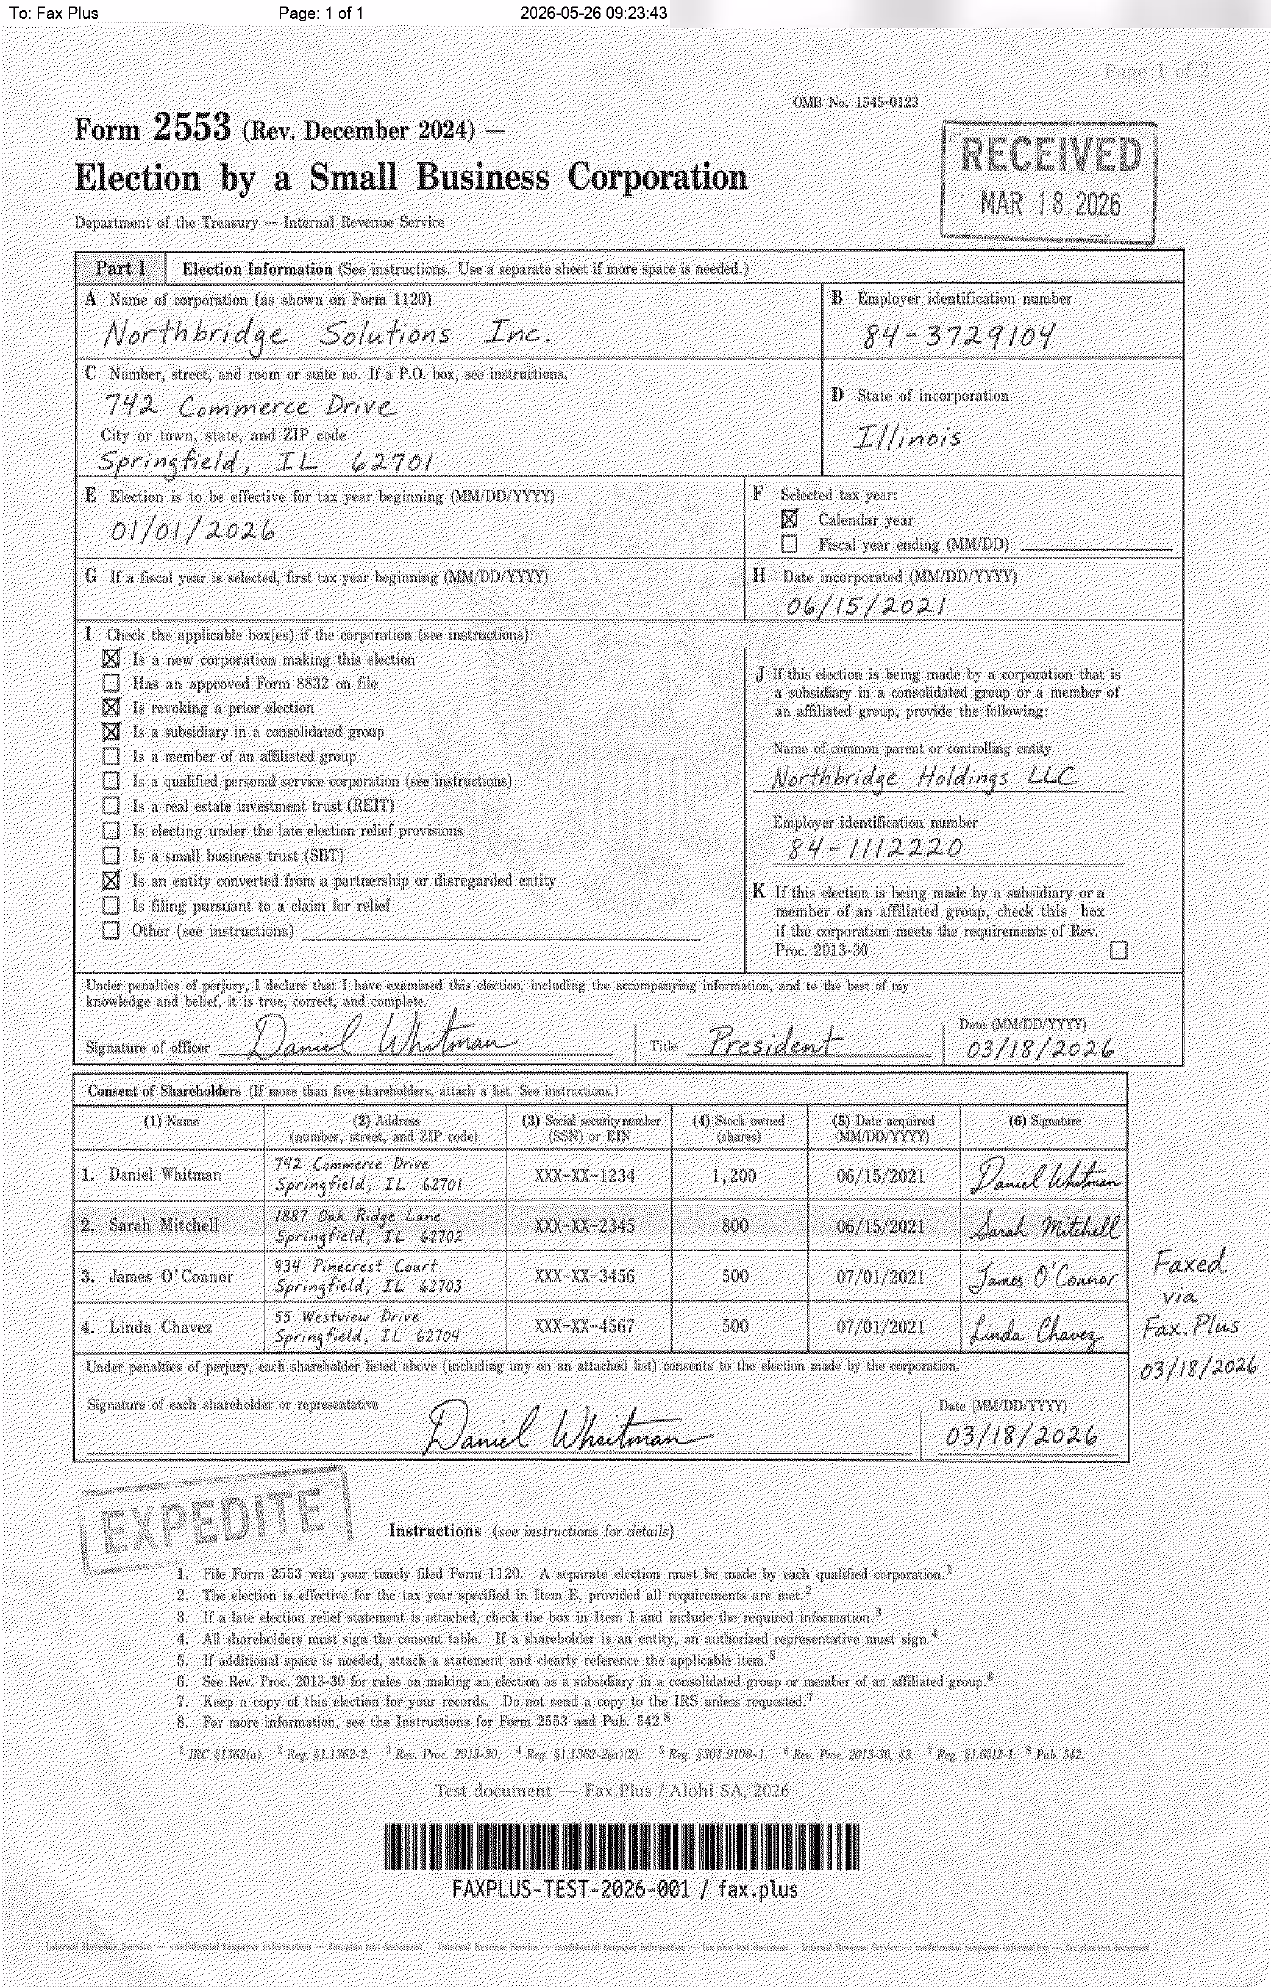 To: Fax Plus Page: 1 of 1 2026-05-26 09:23:43
Page 1 of
OMB No. 1545-0123
Form 2553 (Rev. December 2024) —
Election by a Small Business Corporation
RECEIVED
MAR 18 2026
Department of the Treasury — Internal Revenue Service
Part I Election Information (See instructions. Use a separate sheet if more space is needed.)
A Name of corporation (as shown on Form 1120)
Northbridge Solutions Inc.
B Employer identification number
84-3729104
C Number, street, and room or suite no. If a P.O. box, see instructions.
742 Commerce Drive
City or town, state, and ZIP code
Springfield, IL 62701
D State of incorporation
Illinois
E Election is to be effective for tax year beginning (MM/DD/YYYY)
01/01/2026
F Selected tax year:
☒ Calendar year
☐ Fiscal year ending (MM/DD)
G If a fiscal year is selected, first tax year beginning (MM/DD/YYYY)
H Date incorporated (MM/DD/YYYY)
06/15/2021
I Check the applicable box(es) if the corporation (see instructions):
☒ Is a new corporation making this election
☐ Has an approved Form 8832 on file
☒ Is revoking a prior election
☒ Is a subsidiary in a consolidated group
☐ Is a member of an affiliated group
☐ Is a qualified personal service corporation (see instructions)
☐ Is a real estate investment trust (REIT)
☐ Is electing under the late election relief provisions
☐ Is a small business trust (SBT)
☒ Is an entity converted from a partnership or disregarded entity
☐ Is filing pursuant to a claim for relief
☐ Other (see instructions)
J If this election is being made by a corporation that is
a subsidiary in a consolidated group or a member of
an affiliated group, provide the following:
Name of common parent or controlling entity
Northbridge Holdings LLC
Employer identification number
84-1112220
K If this election is being made by a subsidiary or a
member of an affiliated group, check this box
if the corporation meets the requirements of Rev.
Proc. 2013-30 ☐
Under penalties of perjury, I declare that I have examined this election, including the accompanying information, and to the best of my
knowledge and belief, it is true, correct, and complete.
Signature of officer Daniel Whitman Title President Date (MM/DD/YYYY)
03/18/2026
Consent of Shareholders (If more than five shareholders, attach a list. See instructions.)
(1) Name (2) Address (3) Social security number (4) Stock owned (5) Date acquired (6) Signature
(number, street, and ZIP code) (SSN) or EIN (shares) (MM/DD/YYYY)
1. Daniel Whitman 742 Commerce Drive XXX-XX-1234 1,200 06/15/2021 Daniel Whitman
Springfield, IL 62701
2. Sarah Mitchell 1887 Oak Ridge Lane XXX-XX-2345 800 06/15/2021 Sarah Mitchell
Springfield, IL 62702
3. James O'Connor 934 Pinecrest Court XXX-XX-3456 500 07/01/2021 James O'Connor
Springfield, IL 62703
4. Linda Chavez 55 Westview Drive XXX-XX-4567 500 07/01/2021 Linda Chavez
Springfield, IL 62704
Faxed
via
Fax.Plus
03/18/2026
Under penalties of perjury, each shareholder listed above (including any on an attached list) consents to the election made by the corporation.
Signature of each shareholder or representative Date (MM/DD/YYYY)
Daniel Whaitman 03/18/2026
EXPEDITE
Instructions (see instructions for details)
1. File Form 2553 with your timely filed Form 1120. A separate election must be made by each qualified corporation.1
2. The election is effective for the tax year specified in Item E, provided all requirements are met.2
3. If a late election relief statement is attached, check the box in Item I and include the required information.3
4. All shareholders must sign the consent table. If a shareholder is an entity, an authorized representative must sign.4
5. If additional space is needed, attach a statement and clearly reference the applicable item.5
6. See Rev. Proc. 2013-30 for rules on making an election as a subsidiary in a consolidated group or member of an affiliated group.6
7. Keep a copy of this election for your records. Do not send a copy to the IRS unless requested.7
8. For more information, see the Instructions for Form 2553 and Pub. 542.8
1 IRC §1362(a). 2 Reg. §1.1362-2. 3 Rev. Proc. 2013-30. 4 Reg. §1.1362-2(a)(2). 5 Reg. §301.9100-1. 6 Rev. Proc. 2013-30, §3. 7 Reg. §1.6012-1. 8 Pub. 542.
Test document — Fax Plus / Alohi SA, 2026
FAXPLUS-TEST-2026-001 / fax.plus